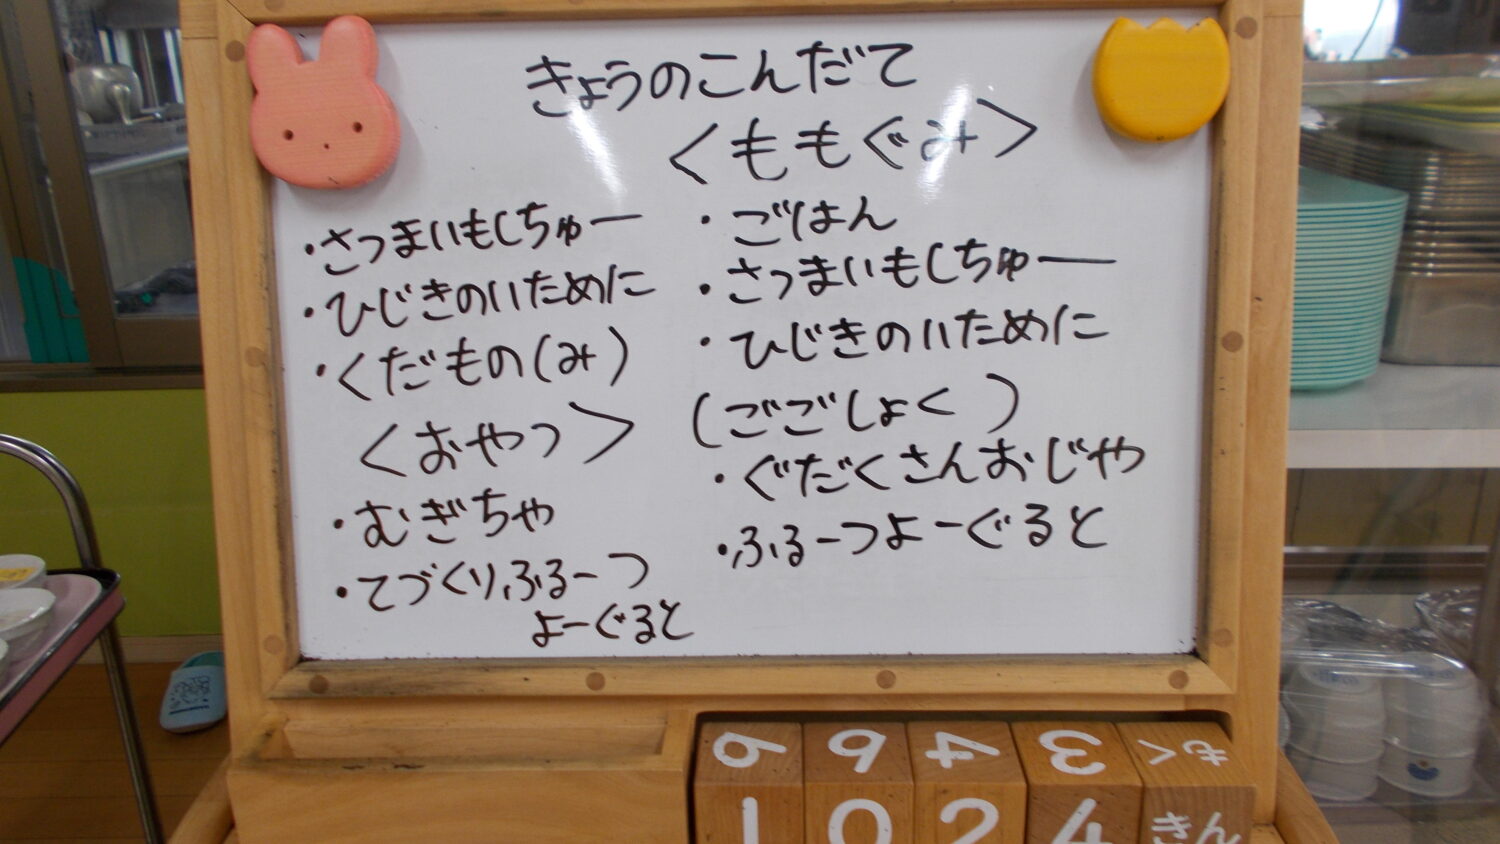 きょうのこんだて
<ももぐみ>
・さつまいもしちゅー
・ひじきのいために
・くだもの(み)
<おやつ>
・むぎちゃ
・てづくりふるーつ
よーぐると
・ごはん
・さつまいもしちゅー
・ひじきのいために
(ごごしょく)
・ぐだくさんおじや
・ふるーつよーぐると
6 9 4 3 もく
1 0 2 4 きん